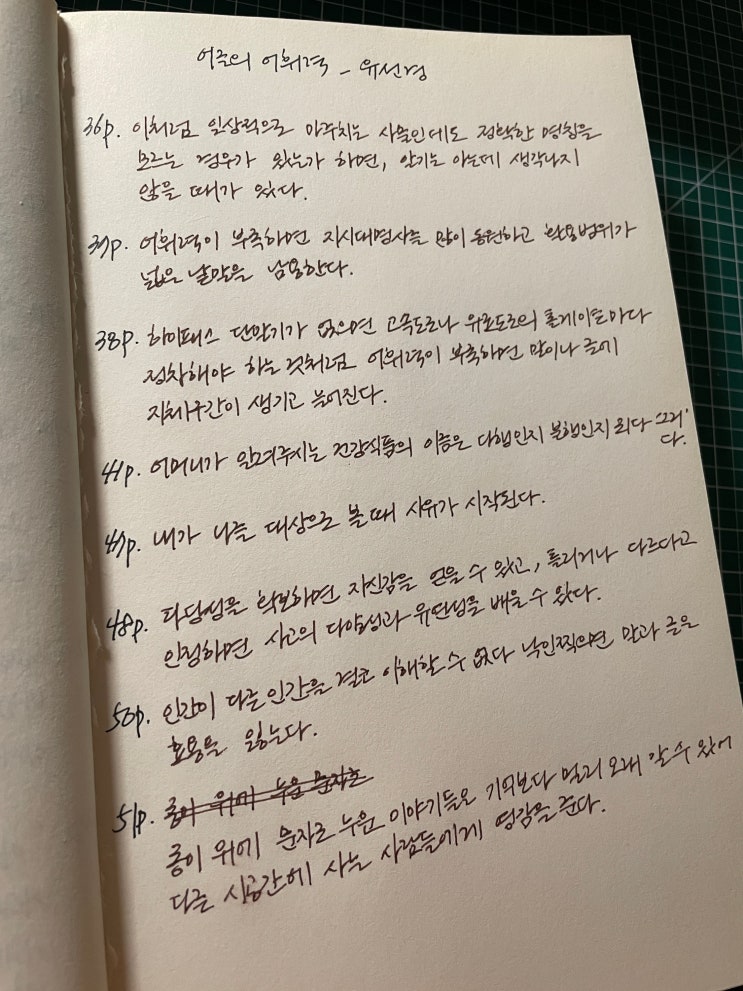 어른의 어휘력 - 유선경
36p. 이처럼 일상적으로 마주치는 사물인데도 정확한 명칭을
모르는 경우가 있는가 하면, 알기는 아는데 생각나지
않을 때가 있다.
37p. 어휘력이 부족하면 지시대명사를 많이 동원하고 활용범위가
넓은 낱말을 남용한다.
38p. 하이패스 단말기가 없으면 고속도로나 유료도로의 톨게이트마다
정차해야 하는 것처럼 어휘력이 부족하면 말이나 글에
지체구간이 생기고 늘어진다.
41p. 어머니가 알려주시는 건강식품의 이름은 다행인지 불행인지 죄다 '그거'
다.
47p. 내가 나를 대상으로 볼 때 사유가 시작된다.
48p. 타당성을 확보하면 자신감을 얻을 수 있고, 틀리거나 다르다고
인정하면 사고의 다양성과 유연성을 배울 수 있다.
50p. 인간이 다른 인간을 결코 이해할 수 없다 낙인찍으면 말과 글은
효용을 잃는다.
51p. 종이 위에 누운 문자는
종이 위에 문자로 누운 이야기들은 기억보다 멀리 오래 갈 수 있어
다른 시공간에 사는 사람들에게 영감을 준다.